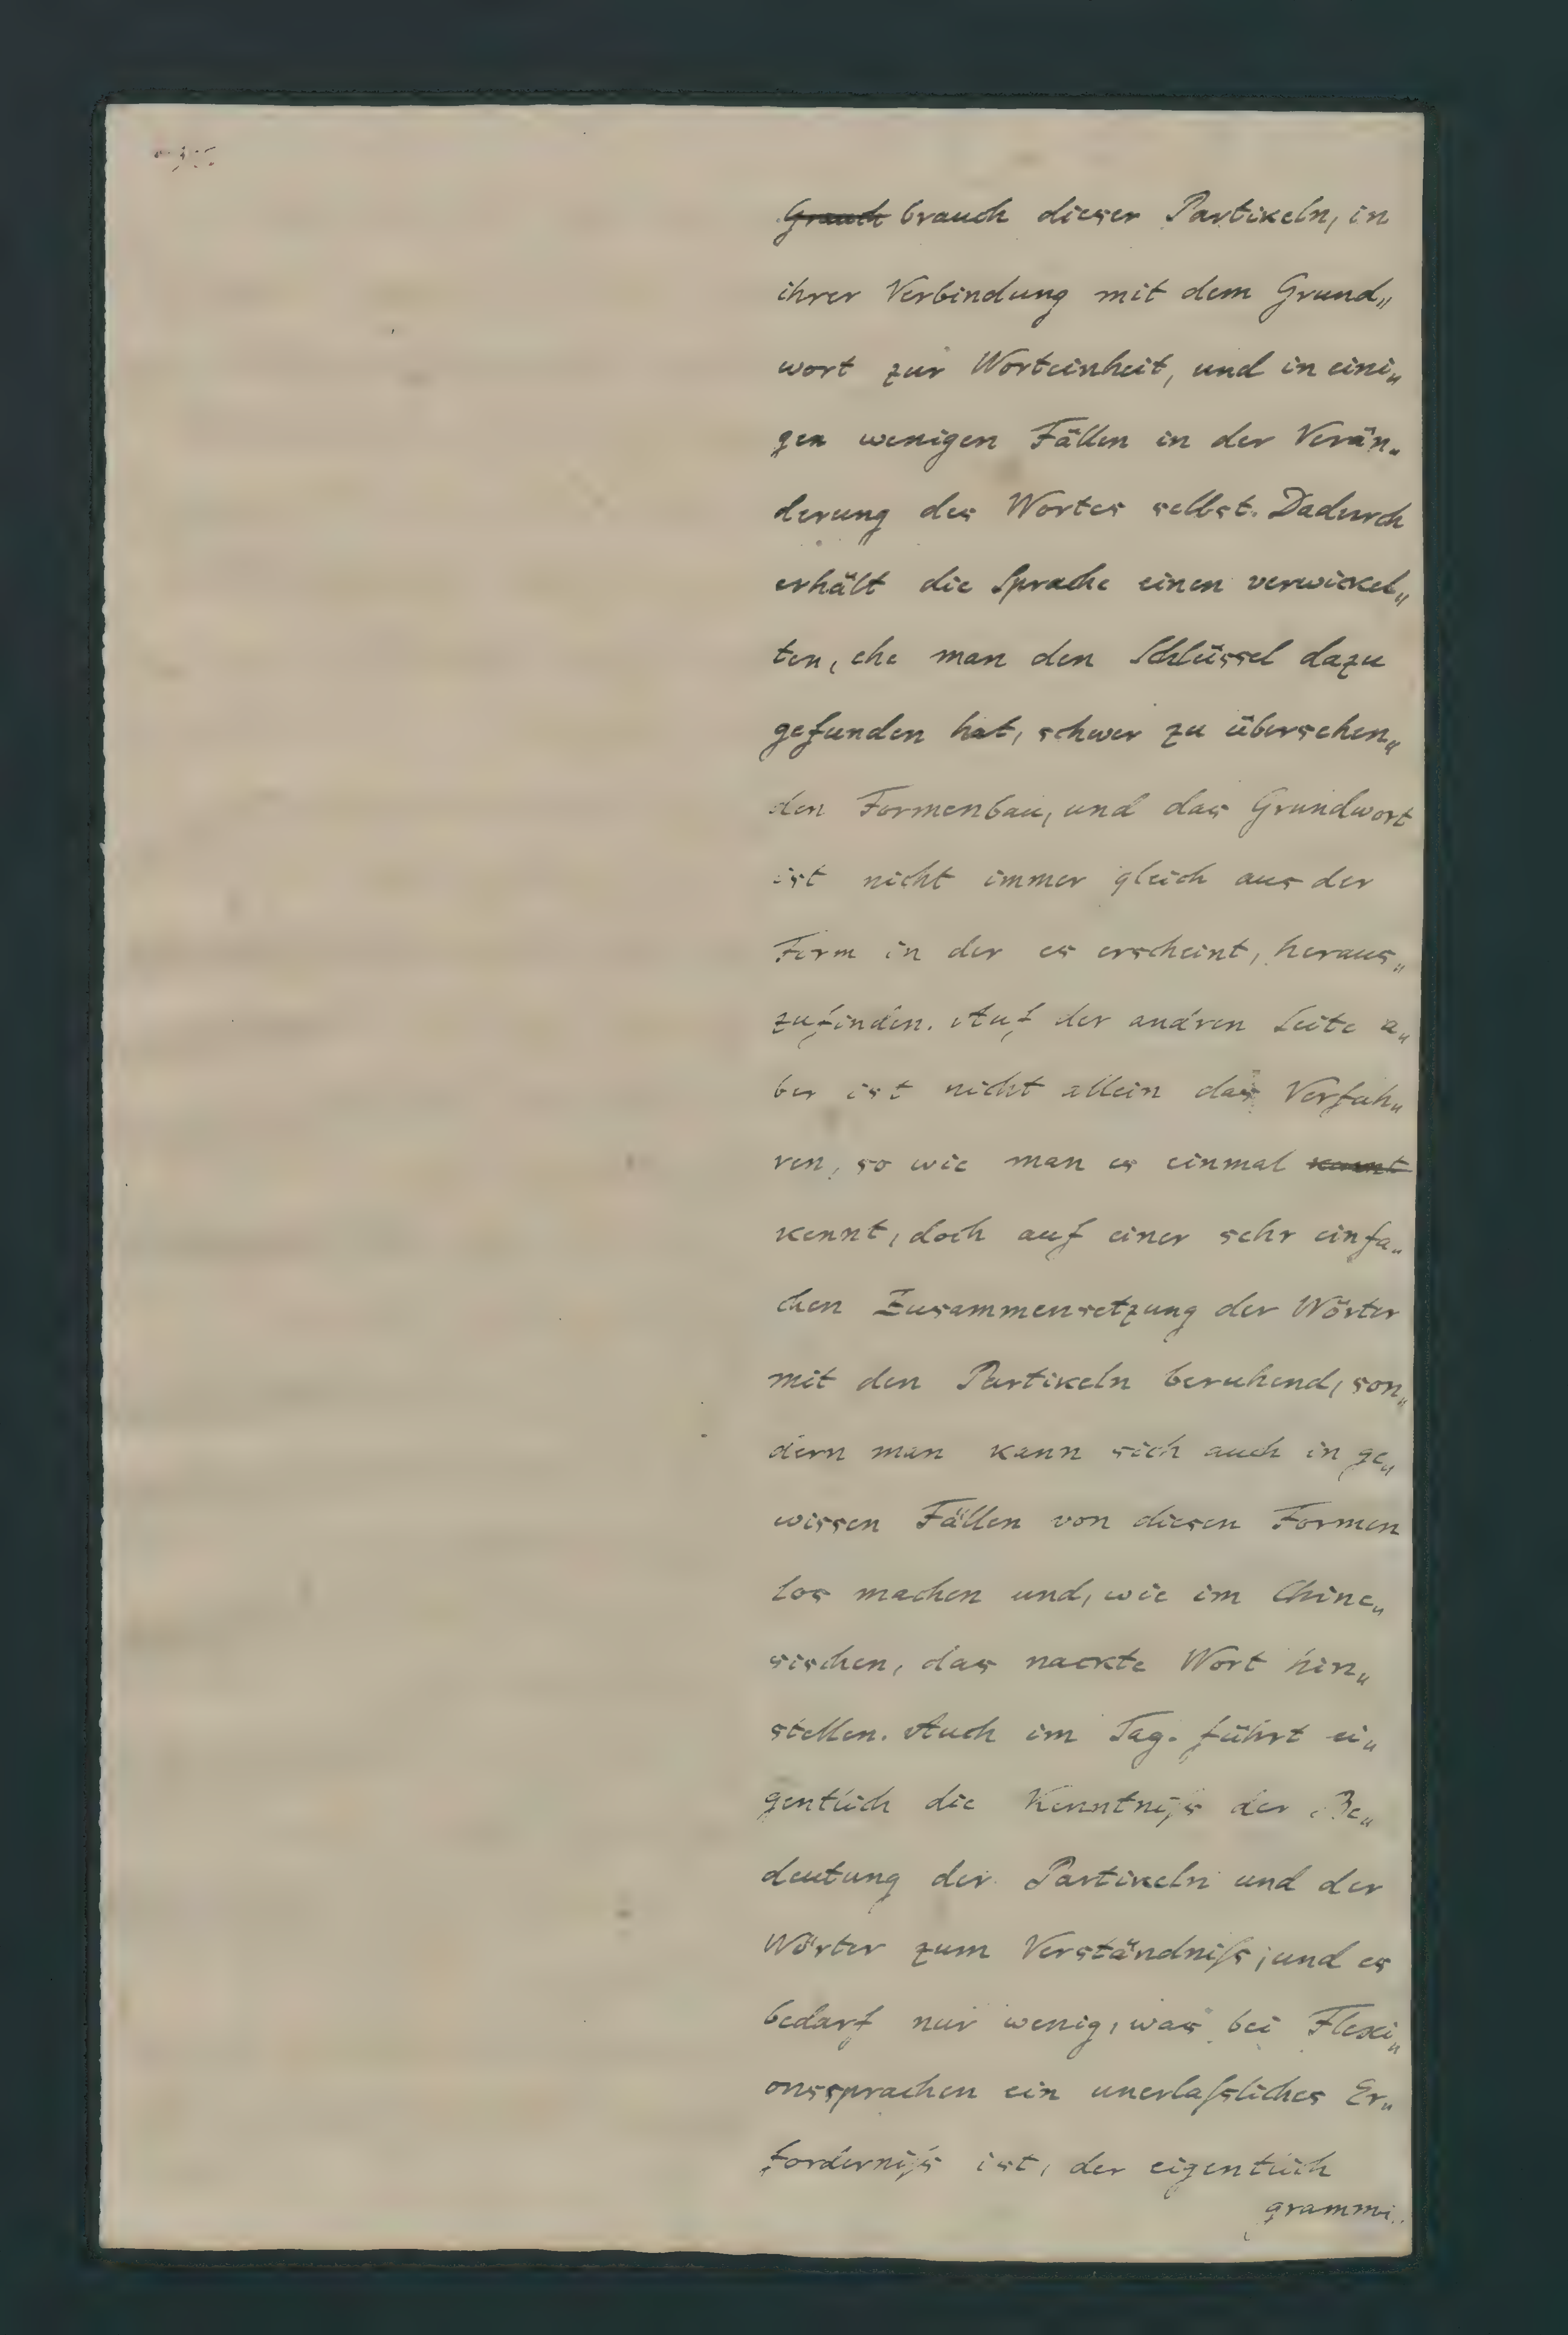 Grauch brauch dieser Partikeln, in
ihrer Verbindung mit dem Grund„
wort zur Worteinheit, und in eini„
gen wenigen Fällen in der Verän„
derung des Wortes selbst. Dadurch
erhält die Sprache einen verwickel„
ten, ehe man den Schlüssel dazu
gefunden hat, schwer zu übersehen„
den Formenbau, und das Grundwort
ist nicht immer gleich aus der
Form in der es erscheint, heraus„
zufinden. Auf der andren Seite a„
ber ist nicht allein das Verfah„
ren, so wie man es einmal
kennt, doch auf einer sehr einfa„
chen Zusammensetzung der Wörter
mit den Partikeln beruhend, son„
dern man kann sich auch in ge„
wissen Fällen von diesen Formen
los machen und, wie im Chine„
sischen, das nackte Wort hin„
stellen. Auch im Tag. führt ei„
gentlich die Kenntniſs der Be„
deutung der Partikeln und der
Wörter zum Verständniſs; und es
bedarf nur wenig, was bei Flexi„
onssprachen ein unerlaſsliches Er„
forderniſs ist, der eigentlich
grammi„